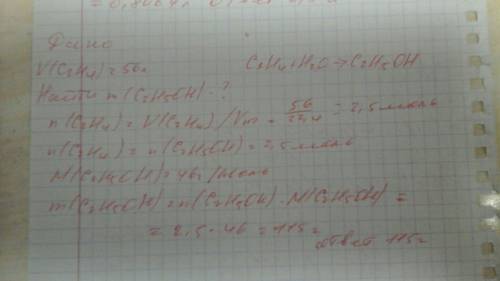 Дано
V(C2H4)=56л C2H4+H2O→C2H5OH
Найти m(C2H5OH)-?
n(C2H4)=V(C2H4)/Vm = 56/22,4 = 2,5 моль
n(C2H4)=n(C2H5OH)=2,5 моль
M(C2H5OH)=46г/моль
m(C2H5OH)=n(C2H5OH)·M(C2H5OH)=
=2,5·46=115г
ответ 115г